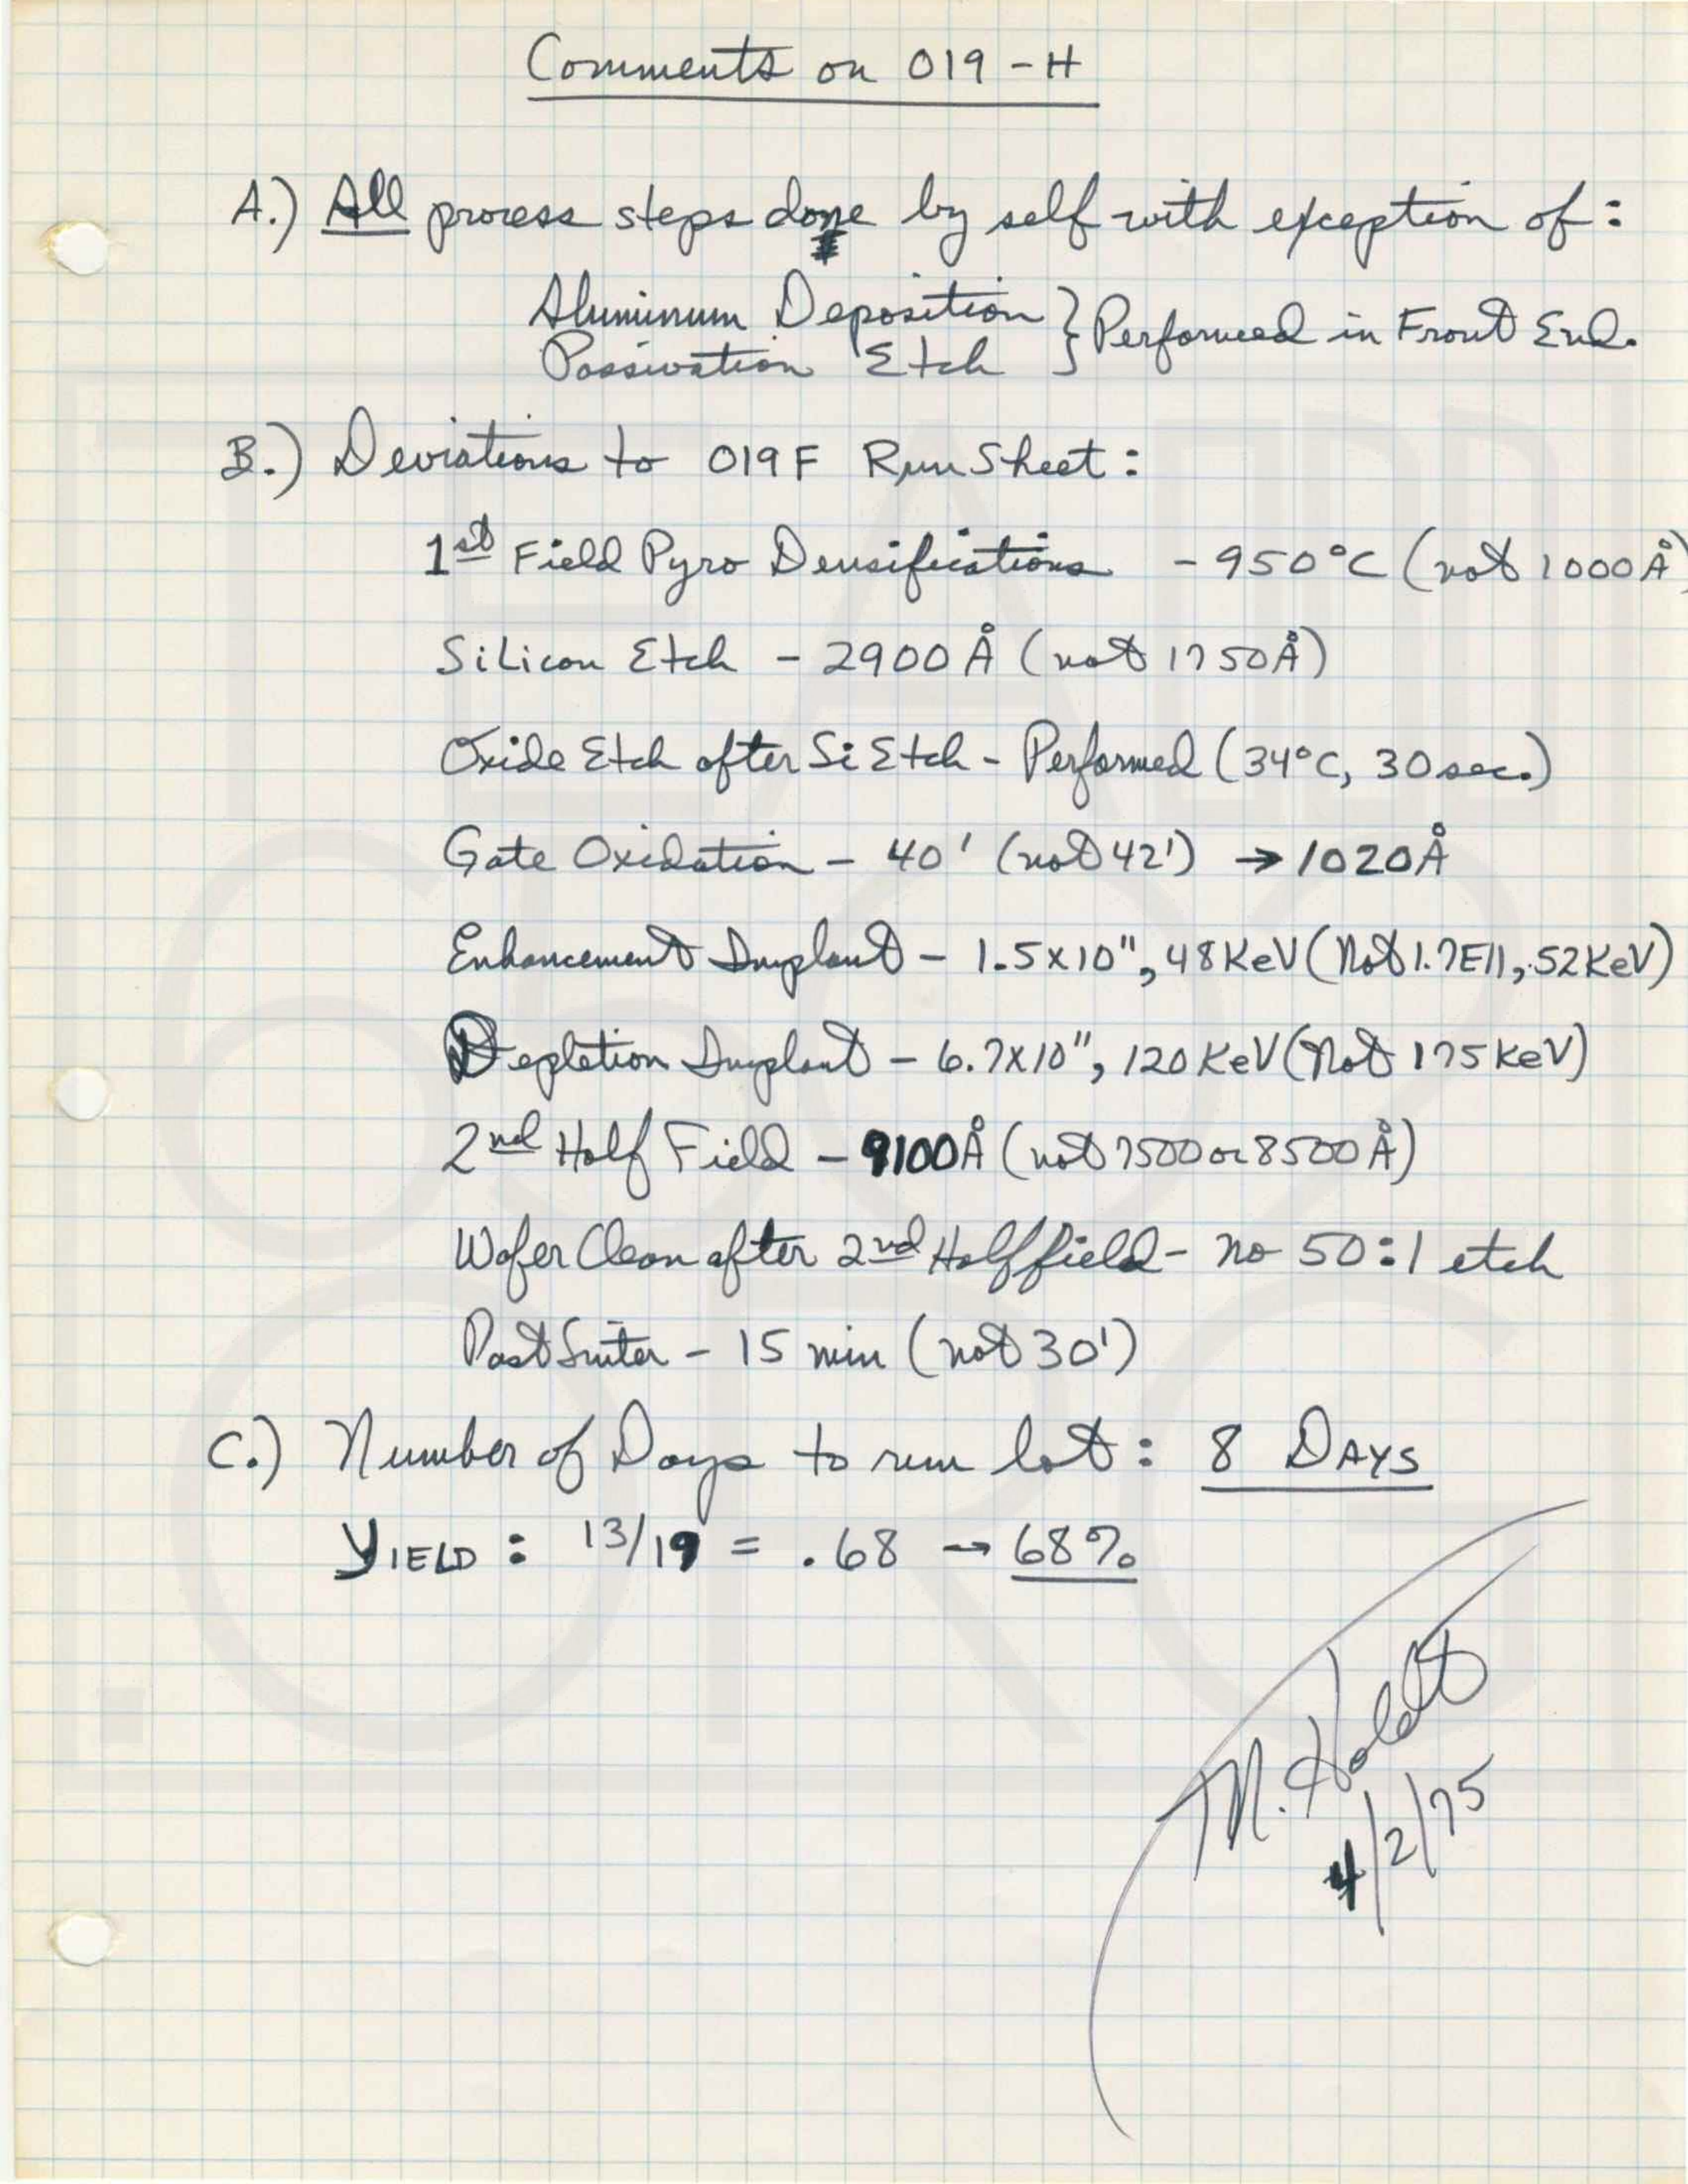 Comments on 019-H
A.) All process steps done by self with exception of:
Aluminum Deposition } Performed in Front End.
Passivation Etch
B.) Deviations to 019F Run Sheet:
1st Field Pyro Densifications - 950°C (not 1000Å)
Silicon Etch - 2900Å (not 1750Å)
Oxide Etch after Si Etch - Performed (34°C, 30 sec.)
Gate Oxidation - 40' (not 42') → 1020Å
Enhancement Implant - 1.5x10", 48 KeV (Not 1.7E11, 52KeV)
Depletion Implant - 6.7X10", 120 KeV (Not 175 KeV)
2nd Half Field - 9100Å (not 7500 or 8500Å)
Wafer Clean after 2nd Half field - no 50:1 etch
Post Sinter - 15 min (not 30')
C.) Number of Days to run lot: 8 DAYS
YIELD: 13/19 = .68 → 68%
M. Holdt
4/2/75